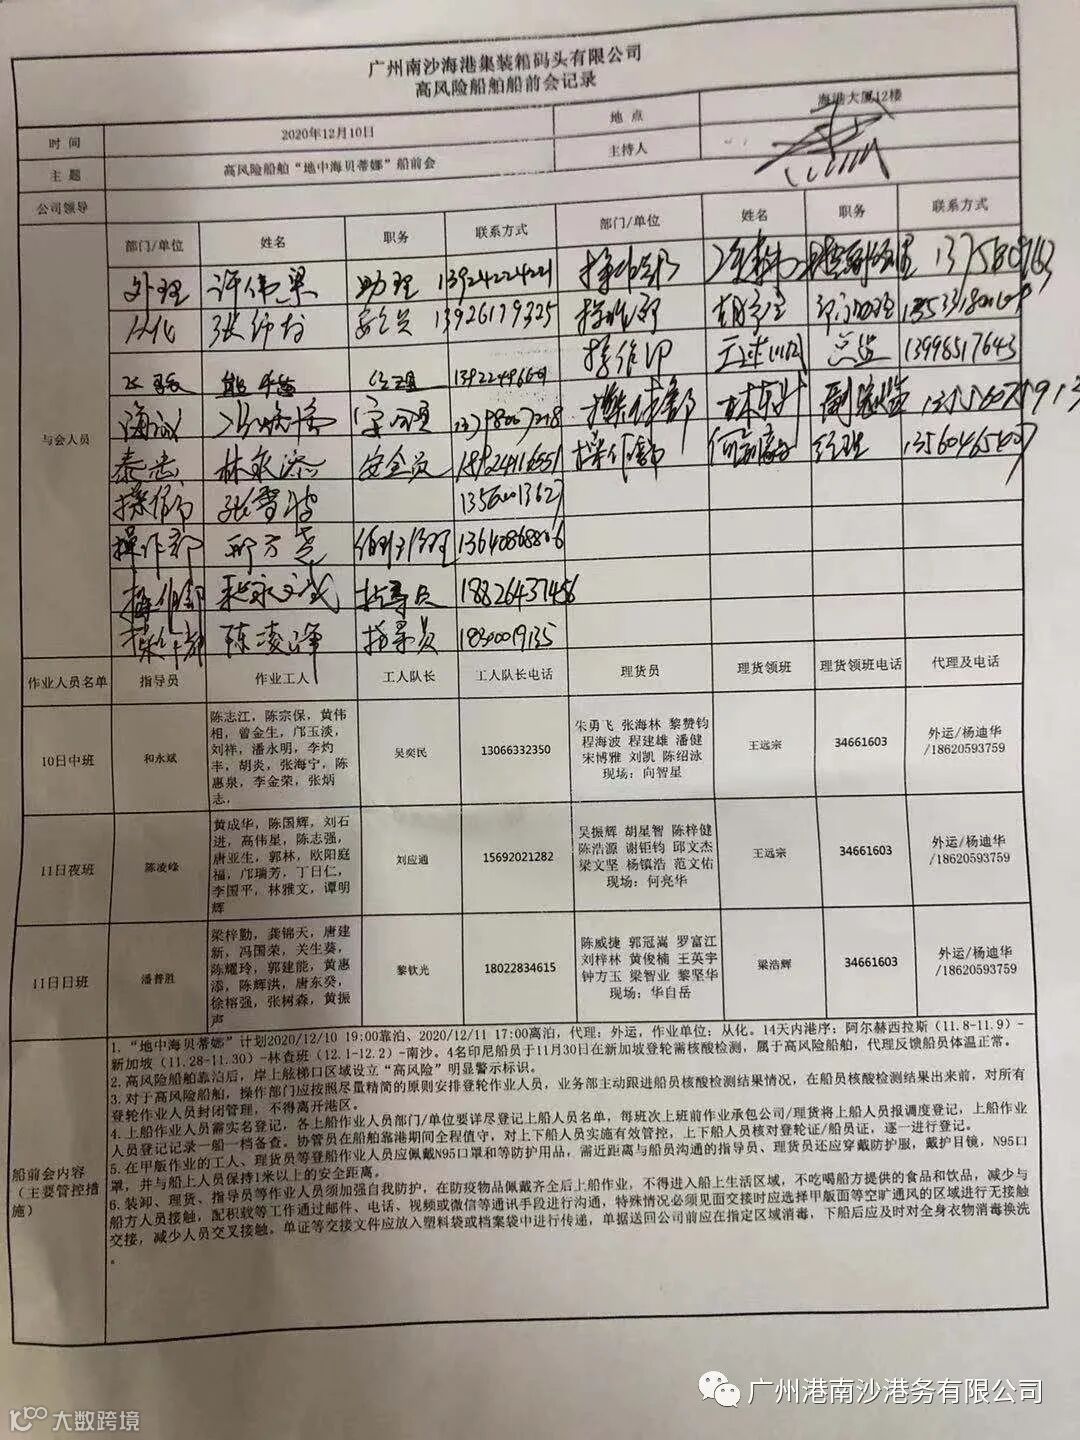 广州南沙海港集装箱码头有限公司
高风险船舶船前会记录
时 间 2020年12月10日 地 点 海港大厦12楼
主 题 高风险船舶“地中海贝蒂娜”船前会 主持人
公司领导
与会人员 部门/单位 姓名 职务 联系方式 部门/单位 姓名 职务 联系方式
外理 许伟梁 助理 13924224221 操作部
从化 安全员 13926179325 操作部
操作部 总监 13998517643
海诚
泰志 林永添 安全员 操作部 经理
操作部 张雪波
操作部
操作部 指导员 18826437456
操作部 陈凌峰 指导员
作业人员名单 指导员 作业工人 工人队长 工人队长电话 理货员 理货领班 理货领班电话 代理及电话
10日中班 和永斌 吴奕民 13066332350 王远宗 34661603
陈志江, 陈宗保, 黄伟
相, 曾金生, 邝玉淡,
刘祥, 潘永明, 李灼
丰, 胡炎, 张海宁, 陈
惠泉, 李金荣, 张炳
志,
朱勇飞 张海林 黎赞钧
程海波 程建雄 潘健
宋博雅 刘凯 陈绍泳
现场: 向智星
外运/杨迪华
/18620593759
11日夜班 陈凌峰 刘应通 15692021282 王远宗 34661603
黄成华, 陈国辉, 刘石
进, 高伟星, 陈志强,
唐亚生, 郭林, 欧阳庭
福, 邝瑞芳, 丁日仁,
李国平, 林雅文, 谭明
辉
吴振辉 胡星智 陈梓健
陈浩源 谢钜钧 邱文杰
梁文坚 杨镇浩 范文佑
现场: 何亮华
外运/杨迪华
/18620593759
11日日班 潘普胜 黎钦光 18022834615 梁浩辉 34661603
梁梓勤, 龚锦天, 唐建
新, 冯国荣, 关生葵,
陈耀玲, 郭建能, 黄惠
添, 陈辉洪, 唐东癸,
徐榕强, 张树森, 黄振
声
陈威捷 郭冠嵩 罗富江
刘梓林 黄俊楠 王英宇
钟方玉 梁智业 黎坚华
现场: 华自岳
外运/杨迪华
/18620593759
船前会内容
(主要管控措
施)
1. “地中海贝蒂娜”计划2020/12/10 19:00靠泊、2020/12/11 17:00离泊, 代理: 外运, 作业单位: 从化. 14天内港序: 阿尔赫西拉斯 (11.8-11.9) -
新加坡 (11.28-11.30) -林查班 (12.1-12.2) -南沙. 4名印尼船员于11月30日在新加坡登轮需核酸检测, 属于高风险船舶, 代理反馈船员体温正常.
2. 高风险船舶靠泊后, 岸上舷梯口区域设立“高风险”明显警示标识.
3. 对于高风险船舶, 操作部门应按照尽量精简的原则安排登轮作业人员, 业务部主动跟进船员核酸检测结果情况, 在船员核酸检测结果出来前, 对所有
登轮作业人员封闭管理, 不得离开港区.
4. 上船作业人员需实名登记, 各上船作业人员部门/单位要详尽登记上船人员名单, 每班次上班前作业承包公司/理货将上船人员报调度登记, 上船作业
人员登记记录一船一档备查. 协管员在船舶靠港期间全程值守, 对上下船人员实施有效管控, 上下船人员核对登轮证/船员证, 逐一进行登记.
5. 在甲版作业的工人、理货员等登船作业人员应佩戴N95口罩和等防护用品, 需近距离与船员沟通的指导员、理货员还应穿戴防护服, 戴护目镜, N95口
罩, 并与船上人员保持1米以上的安全距离.
6. 装卸、理货、指导员等作业人员须加强自我防护, 在防疫物品佩戴齐全后上船作业, 不得进入船上生活区域, 不吃喝船方提供的食品和饮品, 减少与
船方人员接触, 配积载等工作通过邮件、电话、视频或微信等通讯手段进行沟通, 特殊情况必须见面交接时应选择甲版面等空旷通风的区域进行无接触
交接, 减少人员交叉接触. 单证等交接文件应放入塑料袋或档案袋中进行传递, 单据送回公司前应在指定区域消毒, 下船后应及时对全身衣物消毒换洗
。
广州港南沙港务有限公司
大数跨境